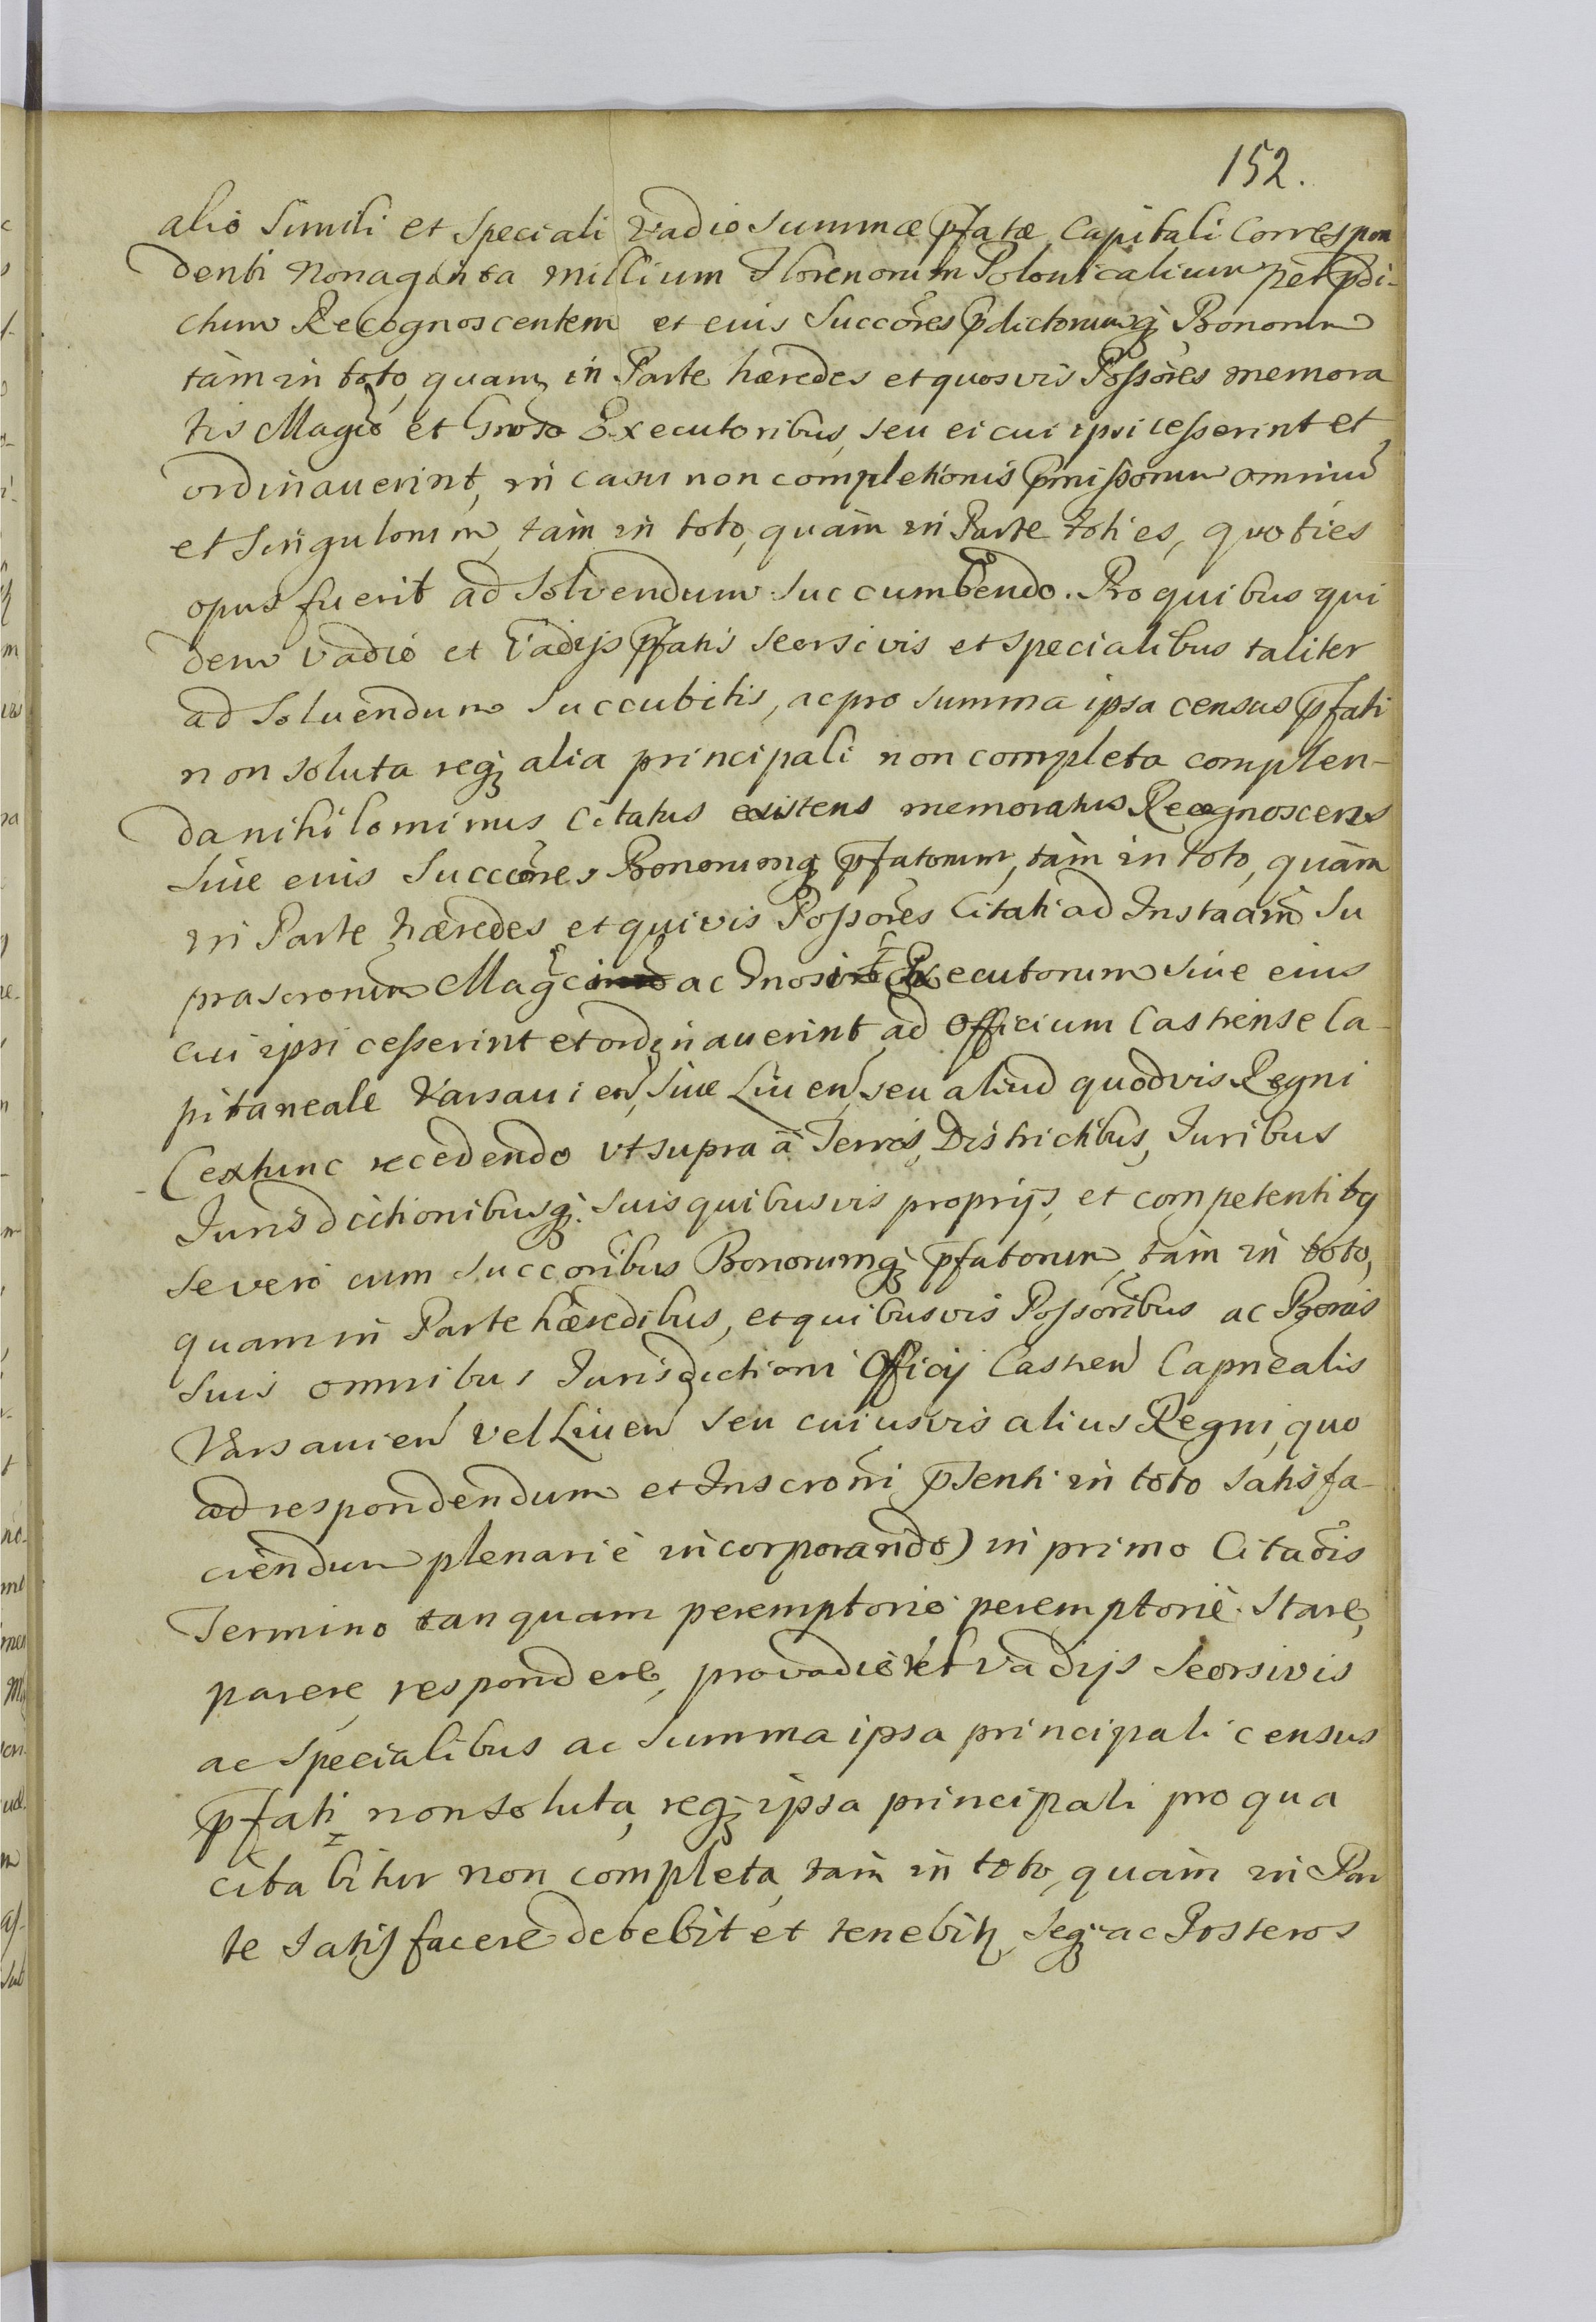 152.
alio simili et speciali vadio summæ pfatæ Capitali Correspon
denti Nonaginta millium Florenorum Polonicalium per pdi-
ctum Recognoscentem et eius Succōres pdictorumq; Bonorum
tàm in toto, quam in Parte hæredes et quosvis Poſsōres memora
tis Magco et Gnoso Executoribus, seu ei cui ipsi ceſserint et
ordinauerint, in casu non completionis pmiſsorum omniū
et singulorum, tàm in toto, quàm in Parte toties, quoties
opus fuerit ad solvendum succumbendo. Pro quibus qui
dem vadio et vadijs pfatis seorsivis et specialibus taliter
ad soluendum succubitis, ac pro summa ipsa census pfati
non soluta req; alia principali non completa complen-
da nihilominus Citatus existens memoratus Recognoscens
siue eius Succōres Bonorumq; pfatorum, tàm in toto, quàm
in Parte hæredes et quivis Poſsōres Citati ad Instaām su
prascronum Magco ac Gnosi Executorum siue eius
cui ipsi ceſserint et ordinauerint ad Officium Castrense Ca-
pitaneale Varsauien, siue Liuen, seu aliud quodvis Regni
(ex hunc recedendo vt supra à Terris, Districtibus, Iuribus
Iurisdictionibusq; suis quibusvis proprijs, et competentibq
se vero cum succoribus Bonorumq; pfatorum, tàm in toto,
quam in Parte hæredibus, et quibusvis Poſsōribus ac Bonis
suis omnibus Iurisdictioni Officij Castren Capnealis
Varsauien vel Liuen seu cuiusvis alius Regni, quo
ad respondendum et Inscroni pſenti in toto satisfa-
ciendum plenariè incorporando) in primo Citaōis
Termino tanquam peremptorio peremptoriè stare,
parere, respondere, pro vadio et vadijs seorsivis
ac specialibus ac summa ipsa principali census
pfati non soluta, req; ipsa principali pro qua
citabitur non completa, tàm in toto, quàm in Par
te satisfacere debebit et tenebitz, seq; ac Posteros